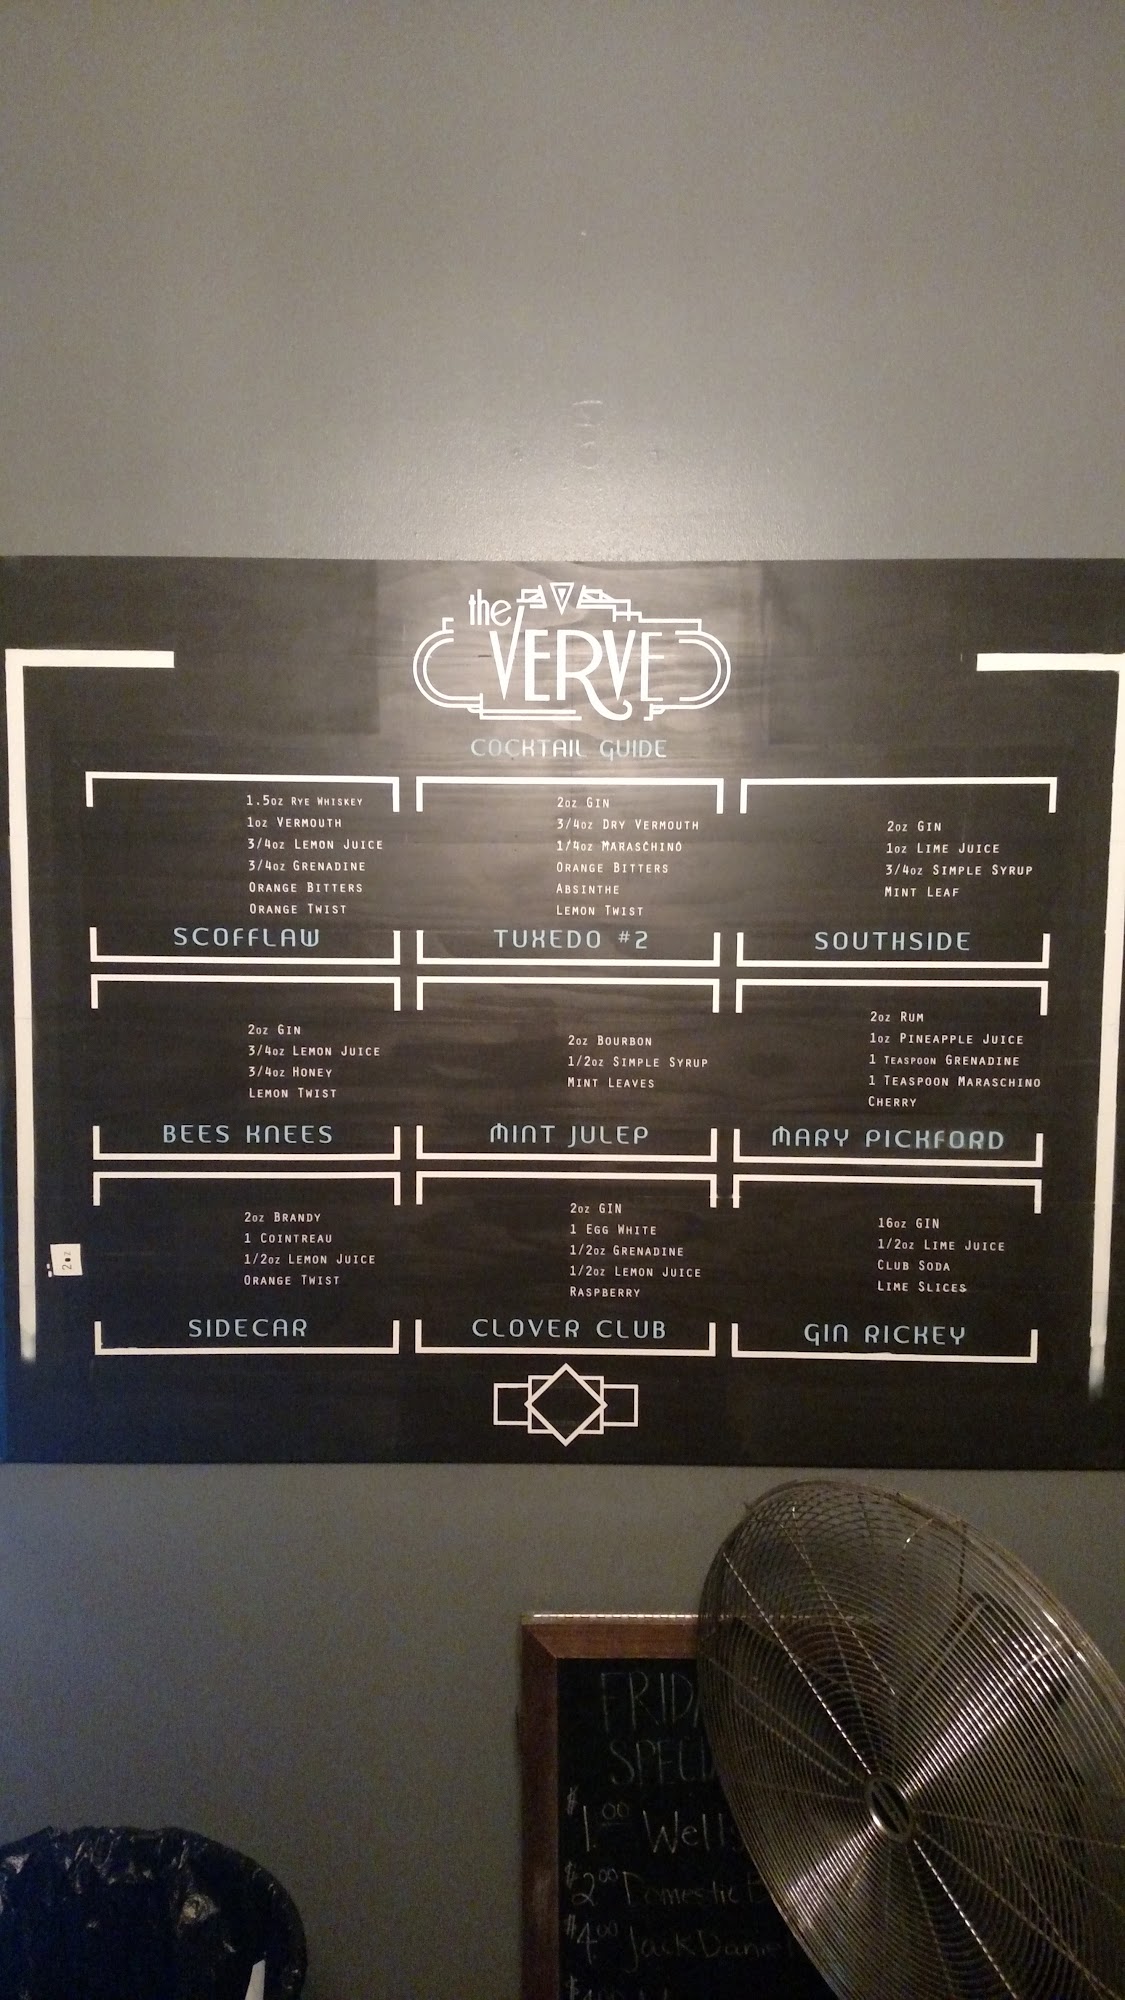 the VERVE
COCKTAIL GUIDE
1.5oz Rye Whiskey
1oz Vermouth
3/4oz Lemon Juice
3/4oz Grenadine
Orange Bitters
Orange Twist
SCOFFLAW
2oz Gin
3/4oz Dry Vermouth
1/4oz Maraschino
Orange Bitters
Absinthe
Lemon Twist
TUXEDO #2
2oz Gin
1oz Lime Juice
3/4oz Simple Syrup
Mint Leaf
SOUTHSIDE
2oz Gin
3/4oz Lemon Juice
3/4oz Honey
Lemon Twist
BEES KNEES
2oz Bourbon
1/2oz Simple Syrup
Mint Leaves
MINT JULEP
2oz Rum
1oz Pineapple Juice
1 Teaspoon Grenadine
1 Teaspoon Maraschino
Cherry
MARY PICKFORD
2oz Brandy
1 Cointreau
1/2oz Lemon Juice
Orange Twist
SIDECAR
2oz Gin
1 Egg White
1/2oz Grenadine
1/2oz Lemon Juice
Raspberry
CLOVER CLUB
16oz Gin
1/2oz Lime Juice
Club Soda
Lime Slices
GIN RICKEY
$1.00 Well
$2.00 Domestic
$4.00 Jack Daniel